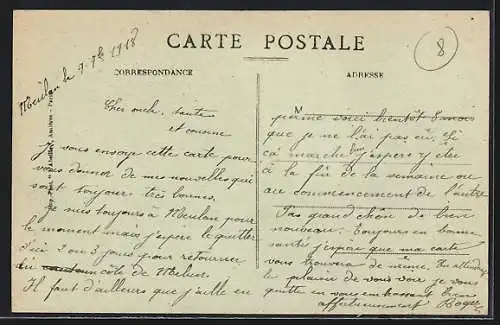 Meulan le 7-7bre 1918
8
CARTE POSTALE
CORRESPONDANCE
ADRESSE
Cher oncle, tante
et cousine
Je vous envoye cette carte pour
vous donner de mes nouvelles qui
sont toujours très bonnes.
Je suis toujours à Meulan pour
le moment mais j'espère le quitter
d'ici 2 ou 3 jours pour retourner
du côté de
Il faut d'ailleurs que j'aille en
M
perme voici bientôt 8 mois
que je ne l'ai pas eu, si
cà marche bien j'espère y être
à la fin de la semaine ou
au commencement de l'autre
Pas grand chose de bien
nouveau. Toujours en bonne
santé j'espère que ma carte
vous trouvera de même. En attendant
le plaisir de vous voir je vous
quitte en vous embrassant bien
affectueusement Roger